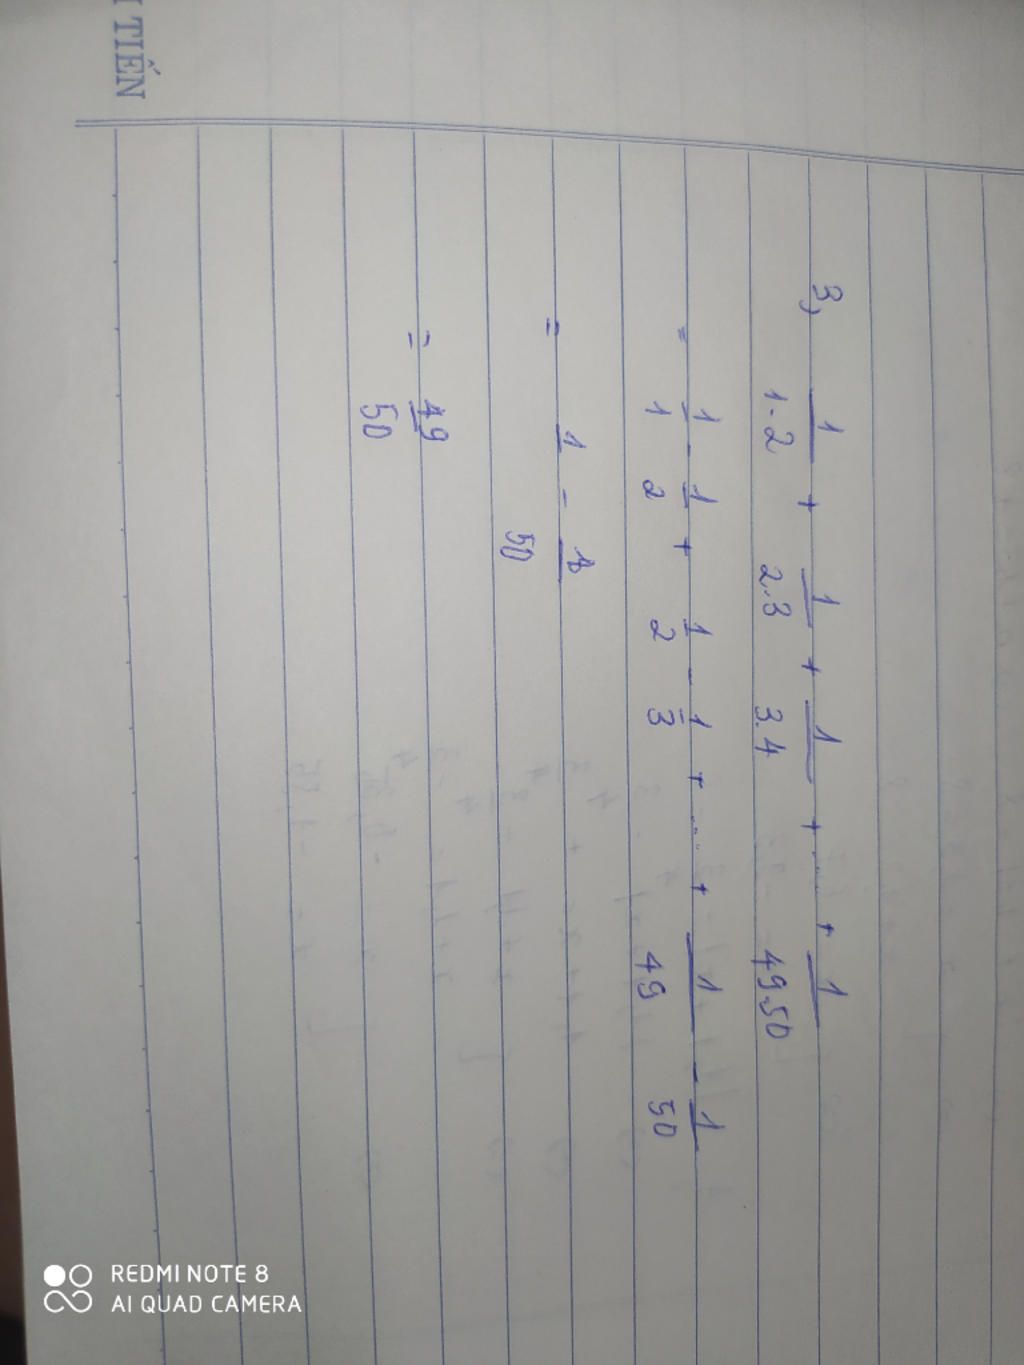 I TIẾN
3, 1/1.2 + 1/2.3 + 1/3.4 + ... + 1/49.50
= 1/1 - 1/2 + 1/2 - 1/3 + ... + 1/49 - 1/50
= 1 - 1/50
= 49/50
REDMI NOTE 8
AI QUAD CAMERA